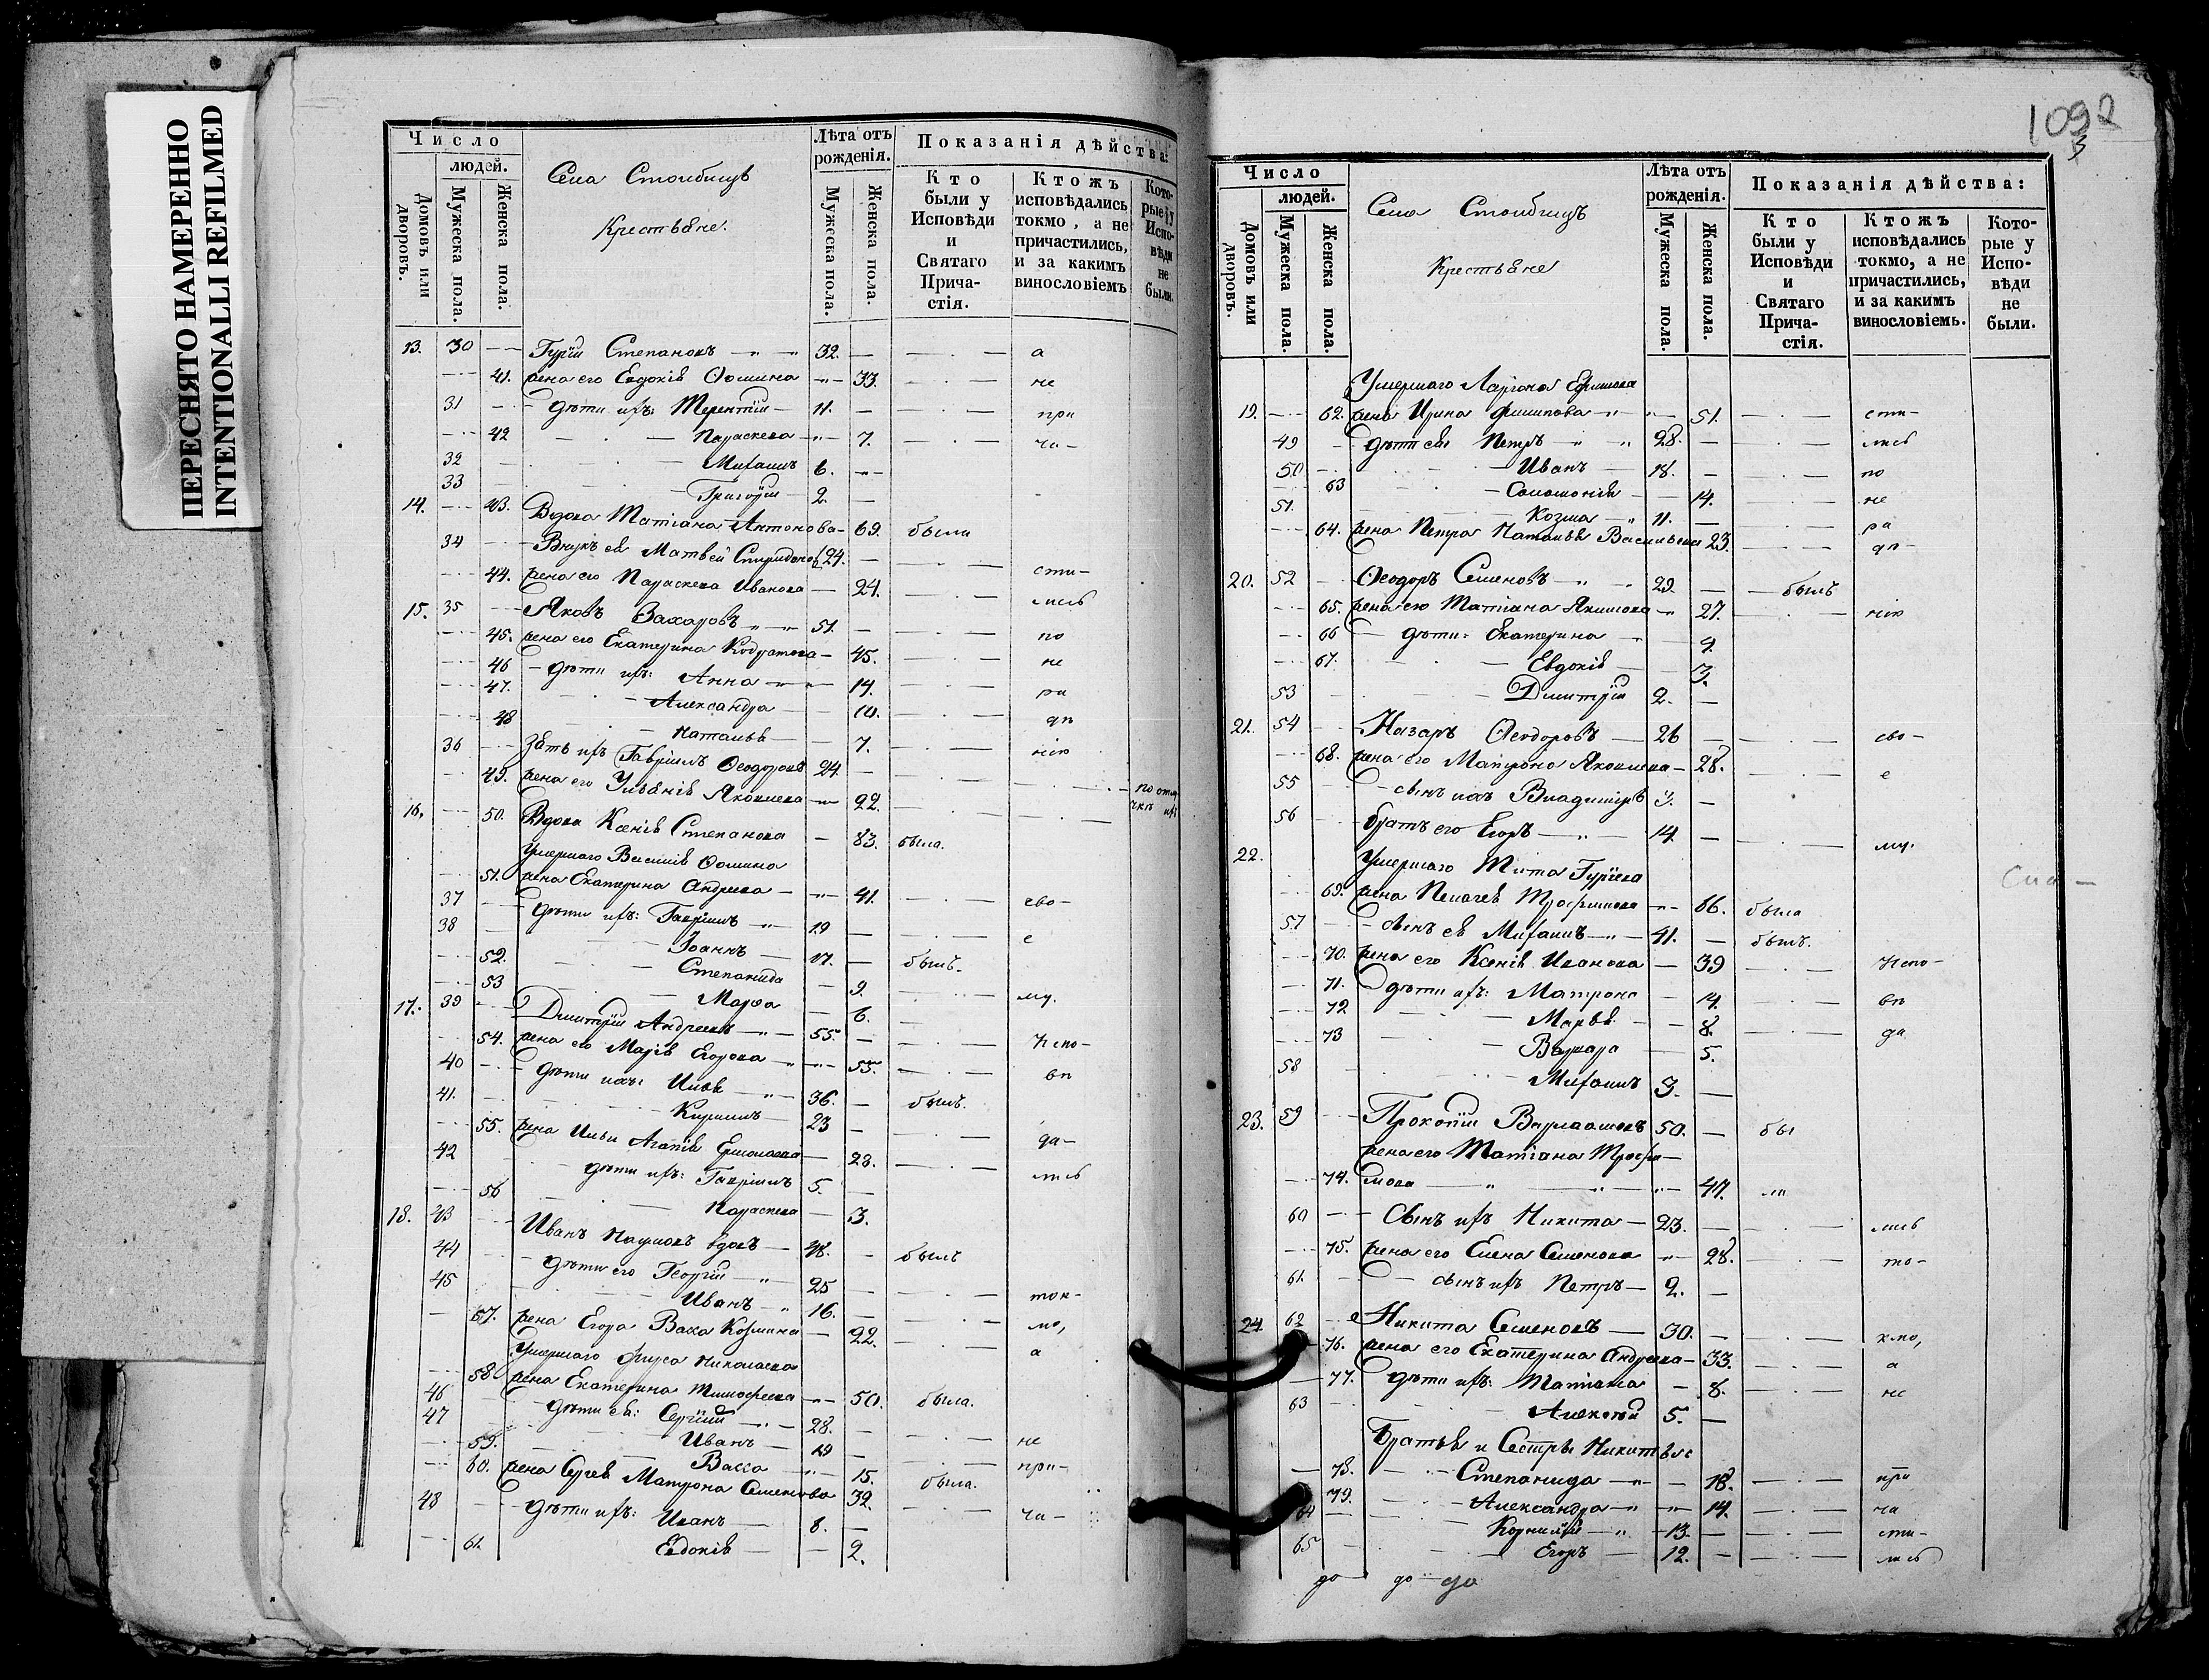 ПЕРЕСНЯТО НАМЕРЕННО
INTENTIONALLI REFILMED
Число
людей.
Домовъ или дворовъ.
Мужеска пола.
Женска пола.
Села Столбищъ
Крестьяне.
Лѣта отъ рожденія.
Мужеска пола.
Женска пола.
Показанія дѣйства:
Кто были у Исповѣди и Святаго Причастія.
Ктожъ исповѣдались токмо, а не причастились, и за какимъ винословіемъ
Которые у Исповѣди не были.
13. 30 Гурій Степановъ 32. а
41. жена его Евдокія Ѳомина 33. не
31 дѣти ихъ: Терентій 11. при
42 Параскева 7. ча-
32 Михаилъ 6.
33 Григорій 2.
14. 43. Вдова Татіана Антонова 69. были
34 Внукъ ея Матвей Спиридонов 24. сти-
44. жена его Параскева Иванова 24. лись
15. 35 Яковъ Захаровъ 51. по
45. жена его Екатерина Кодратова 45. не
46 дѣти ихъ: Анна 14. ра
47. Александра 10. дѣ
48 Наталья 7. нію
36 Зять ихъ Гавріилъ Ѳеодоровъ 24.
49. жена его Ульянія Яковлева 22. по отлу
чкѣ ихъ
16, 50. Вдова Ксенія Степанова 83. была.
Умершаго Василія Ѳомина
51. жена Екатерина Андреева 41. сво-
37 дѣти ихъ: Гавріилъ 19 е
38 Іоаннъ 17. былъ.
52. Степанида 9. му.
53 Марѳа 6.
17. 39 Дмитрій Андреевъ 55. Испо-
54. жена его Марія Егорова 55. вѣ
40 дѣти ихъ: Илья 36. былъ.
41. Кирилъ 23
55. жена Ильи Агапія Ермолаева 28. да-
42 дѣти ихъ: Гавріилъ 5. лись
56 Параскева 3.
18. 43 Иванъ Наумовъ вдовъ 48. былъ
44 дѣти его Георгій 25 ток-
45 Иванъ 16. мо,
57. жена Егора Васа Козмина 22. а
Умершаго Фирса Николаева
58 жена Екатерина Тимофеева 50. была.
46 дѣти ея: Сергій 28.
47 Иванъ 19 не
59. Васса 15. при-
60. жена Сергея Матрона Семенова 32. была.
48 дѣти ихъ: Иванъ 8. ча-
61. Евдокія 2.
1092
3
Число
людей.
Домовъ или дворовъ.
Мужеска пола.
Женска пола.
Села Столбищъ
Крестьяне
Лѣта отъ рожденія.
Мужеска пола.
Женска пола.
Показанія дѣйства:
Кто были у Исповѣди и Святаго Причастія.
Ктожъ исповѣдались токмо, а не причастились, и за какимъ винословіемъ.
Которые у Исповѣди не были.
Умершаго Ларіона Ефимова
19. 62. жена Ирина Филипова 51. сти-
49 дѣти ея Петръ 28. лись
50 Иванъ 18. по
63 Соломонія 14. не
51. Козма 11. ра
64. жена Петра Наталья Васильева 23. дѣ-
20. 52 Ѳеодоръ Семеновъ 29. былъ
65. жена его Татіана Якимова 27. нію
66 дѣти: Екатерина 9.
67. Евдокія 3.
53 Дмитрій 2.
21. 54 Назаръ Ѳеодоровъ 26 сво-
68. жена его Матрона Яковлева 28. е
55 сынъ ихъ Владиміръ 3.
56 братъ его Егоръ 14. му.
22. Умершаго Тита Гурьева
69. жена Пелагея Трофимова 66. была
57 сынъ ея Михаилъ 41. былъ.
70. жена его Ксенія Иванова 39 Испо-
71. дѣти ихъ: Матрона 14. вѣ
72 Марья 8. да
73 Варвара 5.
58 Михаилъ 3.
23. 59 Прокопій Варлаамовъ 50. бы
жена его Татіана Трофи-
74. мова 47. ли
60 Сынъ ихъ Никита 23. лись
75. жена его Елена Семенова 28. то-
61. сынъ ихъ Петръ 2.
24 62 Никита Семеновъ 30. кмо,
76. жена его Екатерина Андреева 33. а
77. дѣти ихъ: Татіана 8. не
63 Алексѣй 5.
Братья и Сестры Никитые
78. Степанида 18. при
79. Александра 14. ча
64 Корнилій 13. сти-
65 Егоръ 12. лись